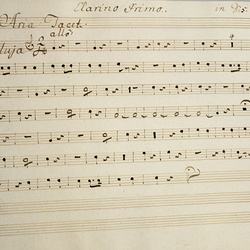 Clarino Primo. in Dis.
Aria Tacet.
allo
luja